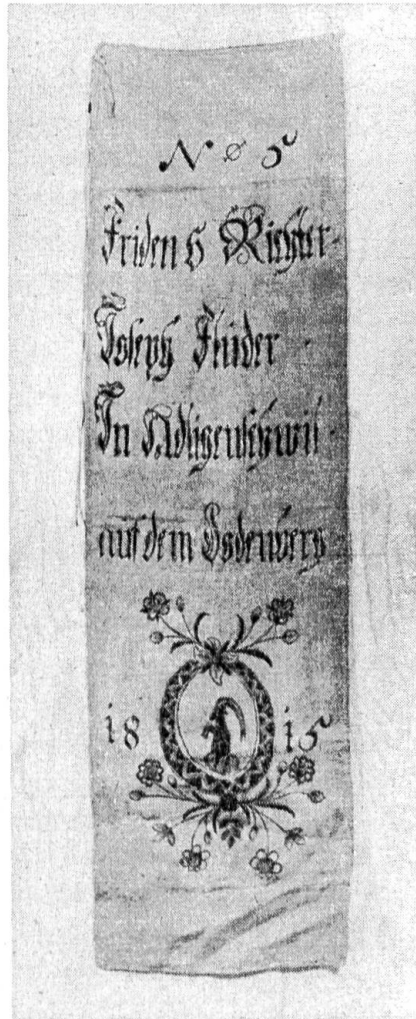 N ø 5
Fridens Richter
Joseph Flüder
In Adligenschwil
auf dem
18 15